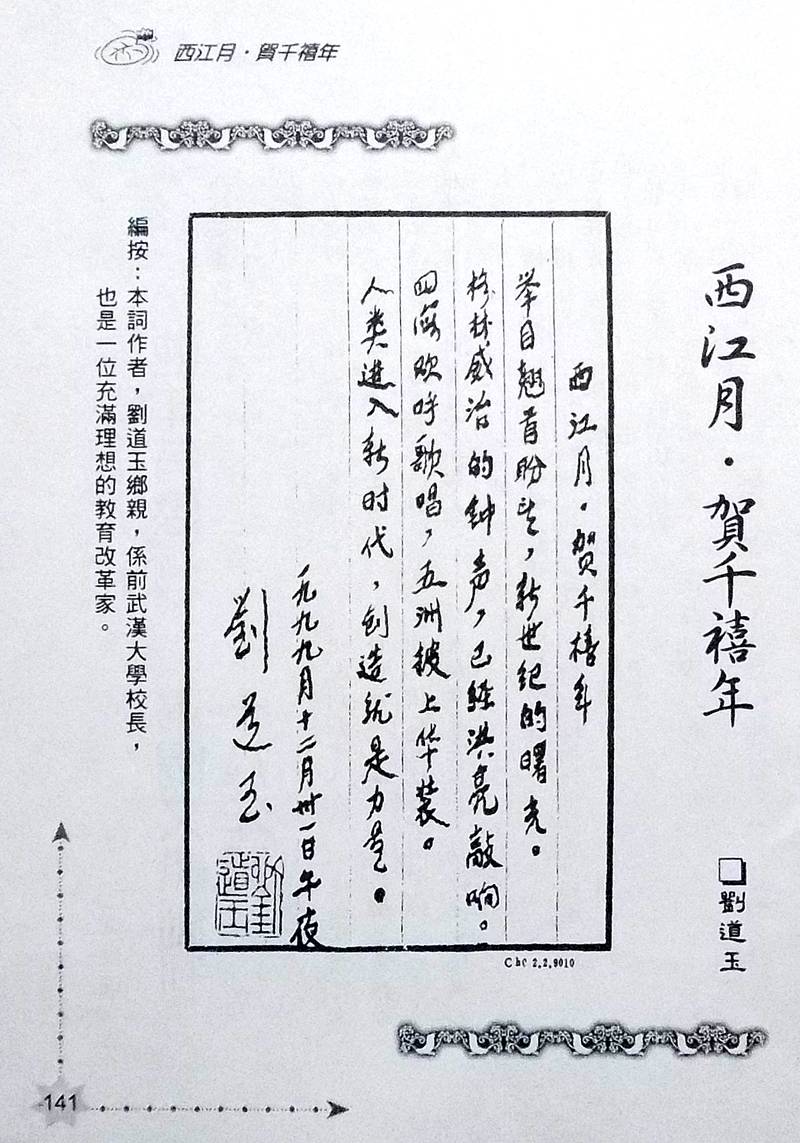 西江月·賀千禧年
西江月·賀千禧年
□劉道玉
西江月·贺千禧年
举目翘首盼望，新世纪的曙光。
格林威治的钟声，已经洪亮敲响。
四海欢呼歌唱，五洲披上华装。
人类进入新时代，创造就是力量。
一九九九月十二月卅一日午夜
劉道玉
劉道玉
Chc 2.2.9010
編按：本詞作者，劉道玉鄉親，係前武漢大學校長，
也是一位充滿理想的教育改革家。
141